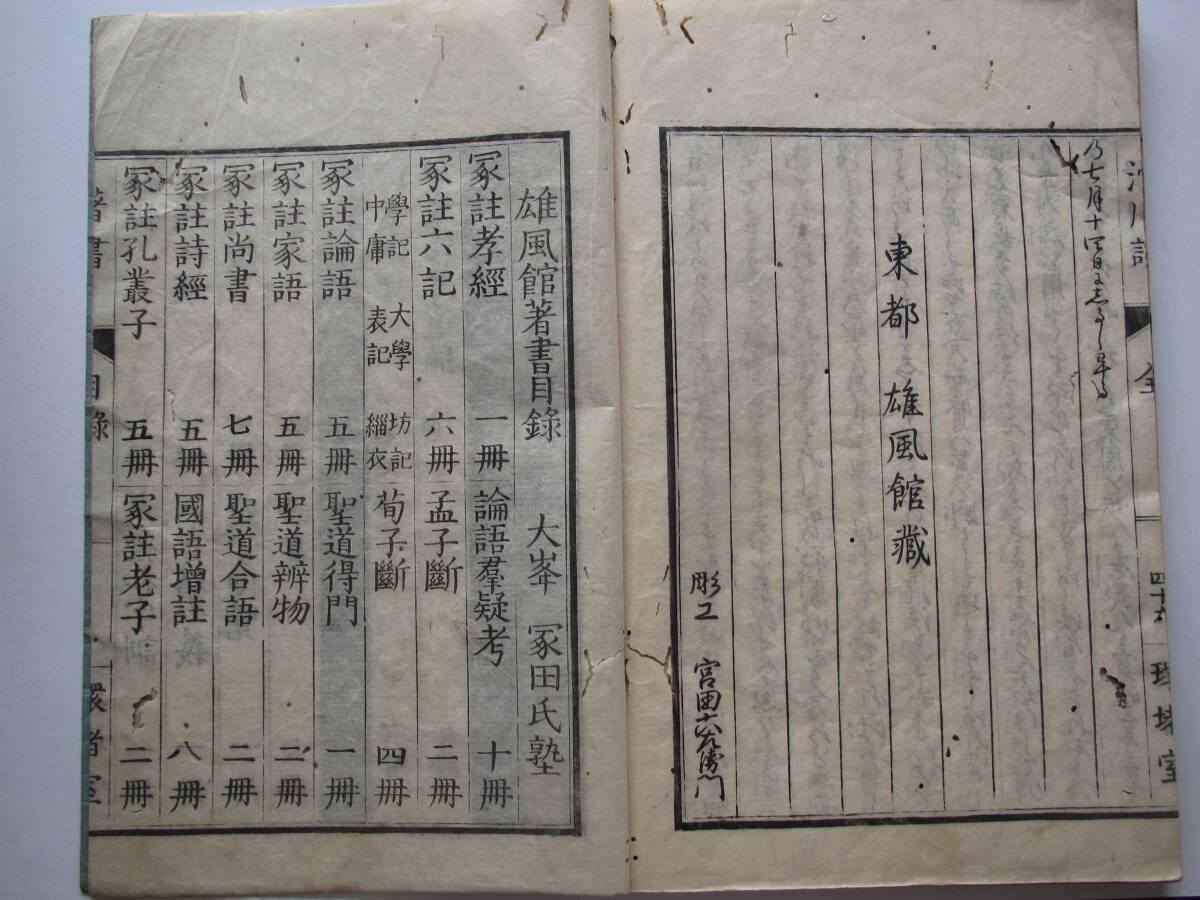 乃七月十四日
東都 雄風館藏
彫工 宮田六左衛門
全
四十六
環堵室
雄風館著書目錄 大峯 冢田氏塾
冢註孝經 一冊 論語羣疑考 十冊
冢註六記 六冊 孟子斷 二冊
學記 大學 坊記
中庸 表記 緇衣
荀子斷 四冊
冢註論語 五冊 聖道得門 一冊
冢註家語 五冊 聖道辨物 二冊
冢註尚書 七冊 聖道合語 二冊
冢註詩經 五冊 國語增註 八冊
冢註孔叢子 五冊 冢註老子 二冊
著書
目錄